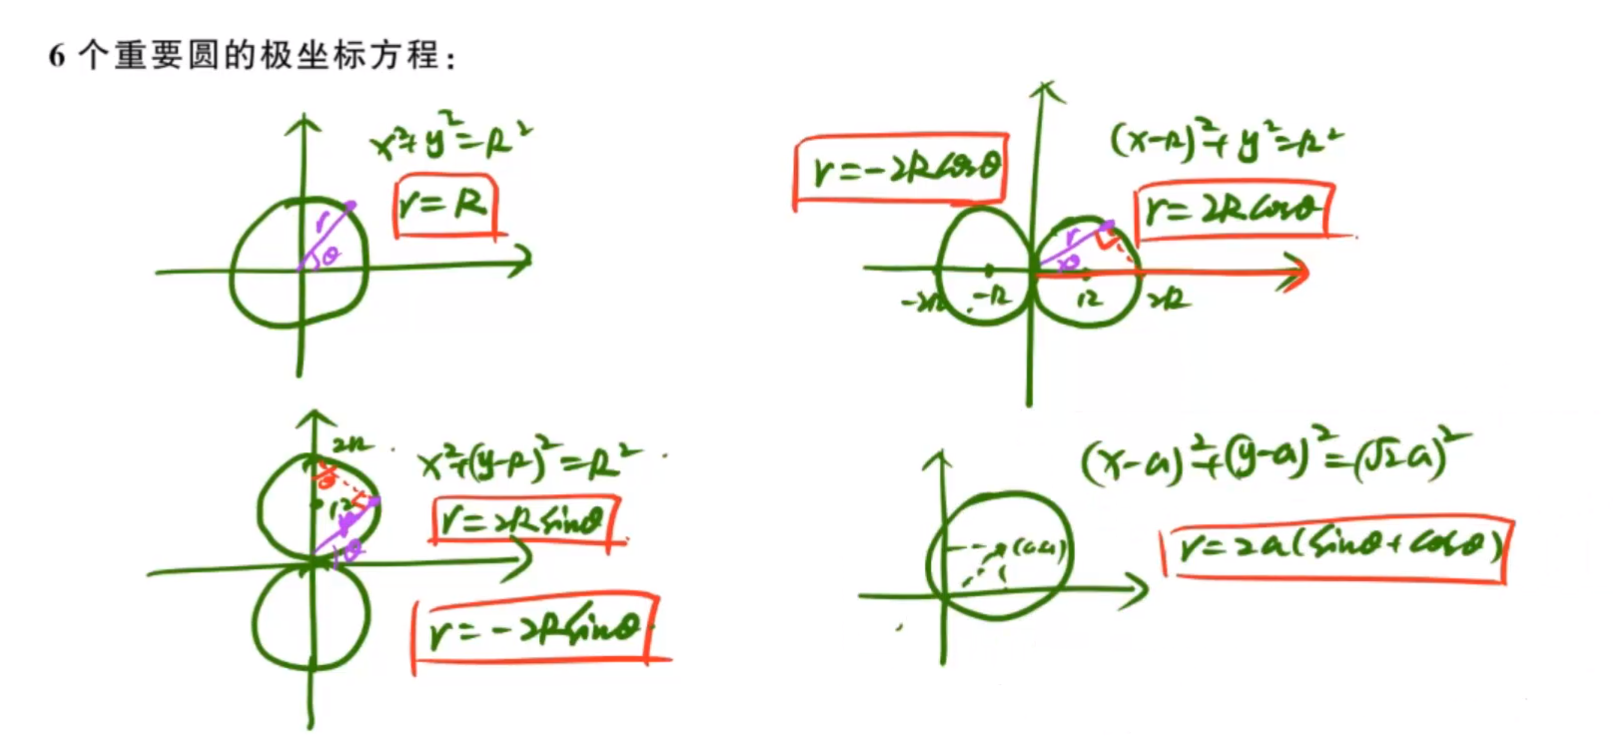 6 个重要圆的极坐标方程：
x²+y²=R²
r=R
r
θ
r=-2Rcosθ
(x-R)²+y²=R²
r=2Rcosθ
r
θ
-2R
-R
R
2R
2R
x²+(y-R)²=R²
θ
R
r=2Rsinθ
θ
r=-2Rsinθ
(x-a)²+(y-a)²=(√2a)²
(a,a)
r=2a(sinθ+cosθ)